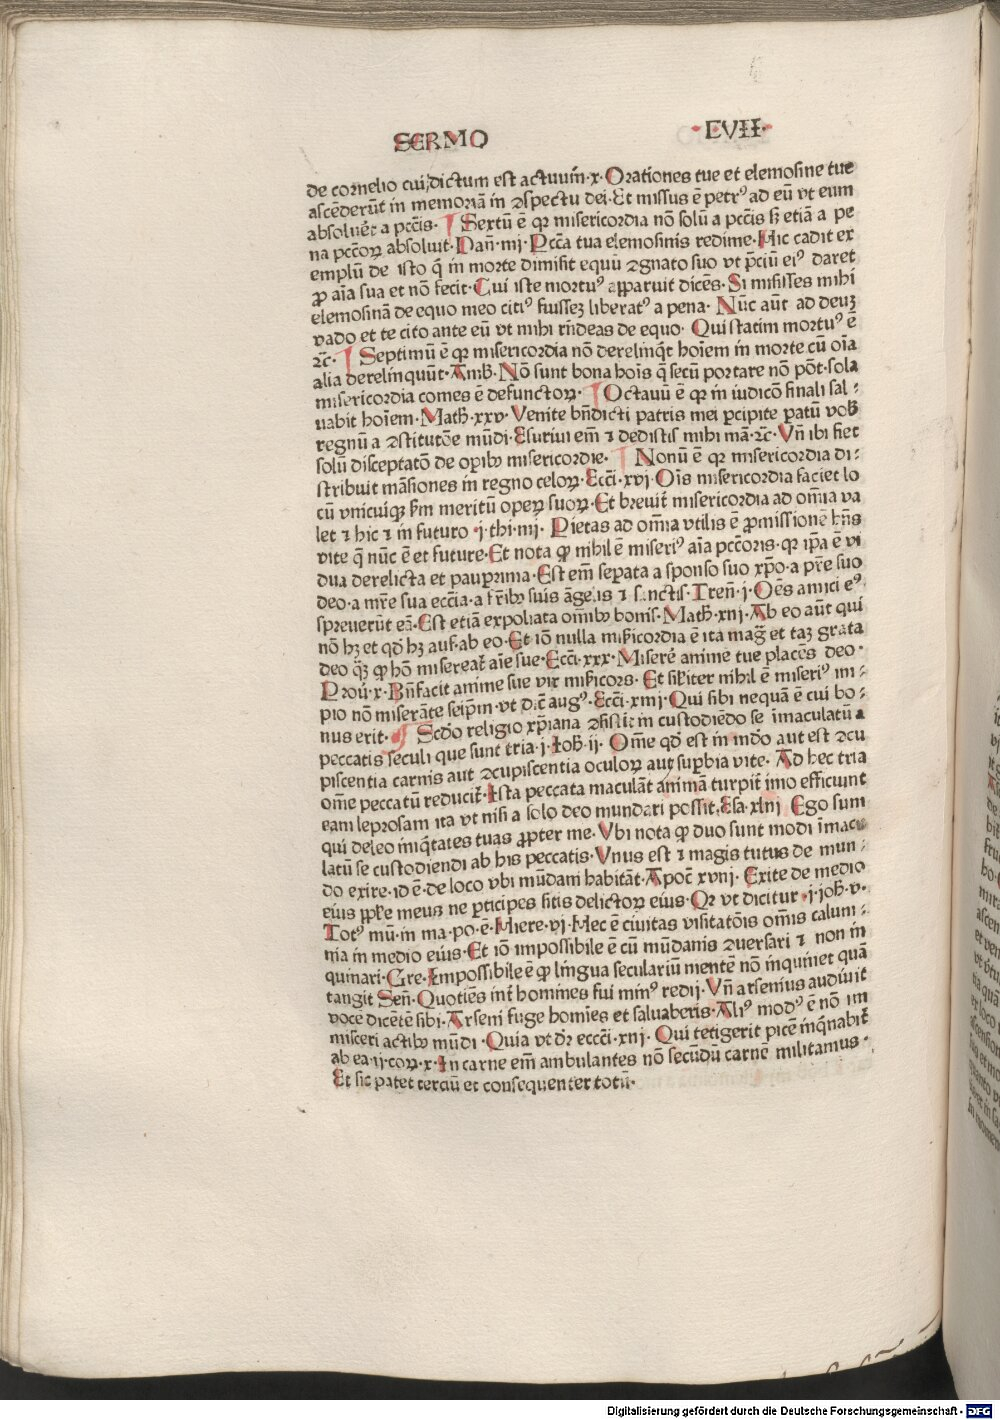 SERMO ·CVII·
de cornelio cui dictum est actuum̄·x·Orationes tue et elemosine tue
ascēderūt in memoriā in ꝯspectu dei·Et missus ē petrꝰ ad eū vt eum
absoluēt a pccīs· ¶ Sextū ē qꝛ misericordia nō solū a pccīs sꝫ etiā a pe
na pccōꝝ absoluit·Dan̄·iiij·Pccā tua elemosinis redime·Hic cadit ex
emplū de isto q̄ in morte dimisit equū ꝯgnato suo vt p̄ciū eiꝰ daret
ꝓ aīa sua et nō fecit·Cui iste mortuꝰ apparuit dicēs·Si misisses mihi
elemosinā de equo meo citiꝰ fuissez liberatꝰ a pena· Nūc aūt ad deuꝫ
vado et te cito ante eū vt mihi rn̄deas de equo· Qui statim mortuꝰ ē
⁊c̄· ¶ Septimū ē qꝛ misericordia nō derelinq̄t hoīem in morte cū oīa
alia derelinquūt·Amb̄·Nō sunt bona hoīs q̄ secū portare nō pōt·sola
misericordia comes ē defunctoꝝ· ¶ Octauū ē qꝛ in iudicō finali sal⸗
uabit hoīem·Math̄·xxv·Venite bn̄dicti patris mei ꝑcipite ꝑatū vob̄
regnū a ꝯstitutōe mūdi·Esuriui em̄ ⁊ dedistis mihi mā·⁊c̄·Vn̄ ibi fiet
solū disceptatō de oꝑibꝰ misericordie· ¶ Nonū ē qꝛ misericordia di⸗
stribuit māsiones in regno celoꝝ·Eccī·xvj·Oīs misericordia faciet lo
cū vnicuiqꝫ ẜm meritū opeꝝ suoꝝ·Et breuit̄ misericordia ad om̄ia va
let ⁊ hic ⁊ in futuro ·j·thi·iiij· Pietas ad om̄ia vtilis ē ꝓmissionē hn̄s
vite q̄ nūc ē et future·Et nota ꝙ nihil ē miseriꝰ aīa pccōris·qꝛ ip̄a ē vi
dua derelicta et pauꝑrima·Est em̄ seꝑata a sponso suo xp̄o·a pr̄e suo
deo·a mr̄e sua ecc̄ia·a fr̄ibꝰ suis āgelis ⁊ sanctis·Tren̄·j·Oēs amici eꝰ
spreuerūt eā·Est etiā expoliata om̄ibꝰ bonis·Math̄·xiij·Ab eo aūt qui
nō hꝫ et qd̄ hꝫ auf·ab eo·Et iō nulla mīs̄icordia ē ita maḡ et taꝫ grata
deo ꝙ hō misereat̄ aīe sue·Eccī·xxx·Miserē anime tue placēs deo·
Prou̇·x·Bn̄facit anime sue vir mis̄icors· Et sil̄iter nihil ē miseriꝰ im⸗
pio nō miserāte seip̄m·vt d·c̄ augꝰ·Eccī·xiiij·Qui sibi nequā ē cui bo⸗
nus erit· ¶ Scd̄o religio xp̄iana ꝯsistit in custodiēdo se īmaculatū a
peccatis seculi que sunt tria·j·Joh̄·ij· Om̄e qd̄ est in mdo aut est ꝯcu
piscentia carnis aut ꝯcupiscentia oculoꝝ aut suꝑbia vite· Ad hec tria
om̄e peccatū reducit̄·Ista peccata maculāt animā turpit̄ imo efficiunt
eam leprosam ita vt nisi a solo deo mundari possit·Esa·xliij Ego sum
qui deleo iniq̄tates tuas ꝓpter me·Vbi nota ꝙ duo sunt modi īmacu
latū se custodiendi ab his peccatis·Vnus est ⁊ magis tutus de mun⸗
do exire·id ē·de loco vbi mūdam habitāt·Apoc̄ xviij· Exite de medio
eius pp̄le meus ne ꝑticipes sitis delictoꝝ eius·Qꝛ vt dicitur ·j·joh̄·v·
Totꝰ mū·in ma·po·ē·Hiere·vj·Hec ē ciuitas visitatōis om̄is calum⸗
nia in medio eius·Et iō impossibile ē cū mūdanis ꝯuersari ⁊ non in
quinari·Gre·Impossibile ē ꝙ lingua seculariū mentē nō inquinet quā
tangit Sen̄·Quotiēs int̄ homines fui minꝰ redij·Vn̄ arsenius audiuit
vocē dicētē sibi·Arseni fuge homīes et saluaberis·Aliꝰ modꝰ ē nō im
misceri actibꝰ mūdi·Quia vt dr̄ ecccī·xiij·Qui tetigerit picē inq̄nabit̄
ab ea·ij·coꝝ·x·In carne em̄ ambulantes nō secūdū carnē militamus·
Et sic patet terciū et consequenter totū·
Digitalisierung gefördert durch die Deutsche Forschungsgemeinschaft - DFG